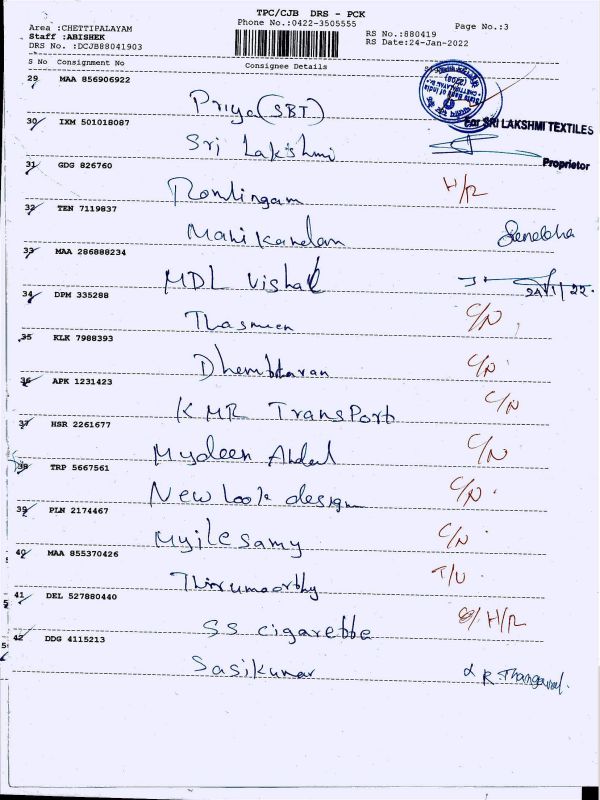 TPC/CJB DRS - PCK
Area :CHETTIPALAYAM
Phone No.:0422-3505555
Page No.:3
Staff :ABISHEK
RS No.:880419
DRS No. :DCJB88041903
RS Date:24-Jan-2022
S No Consignment No
Consignee Details
29 MAA 856906922
Priya (SBT)
30 IXM 501018087
For SRI LAKSHMI TEXTILES
Sri Lakshmi
Proprietor
31 GDG 826760
Ramlingam H/R
32 TEN 7119837
Manikandan
33 MAA 286888234
MDL Vishal 24/1/22.
34 DPM 335288
Thasmeen C/N
35 KLK 7988393
C/N
36 APK 1231423
KMR Transport C/N
37 HSR 2261677
Mydeen Abdul C/N
38 TRP 5667561
New look design C/N.
39 PLN 2174467
Myilesamy C/N.
40 MAA 855370426
Thirumoorthy T/U
41 DEL 527880440
SS cigarette H/R
42 DDG 4115213
Sasikumar R. Thangavel.